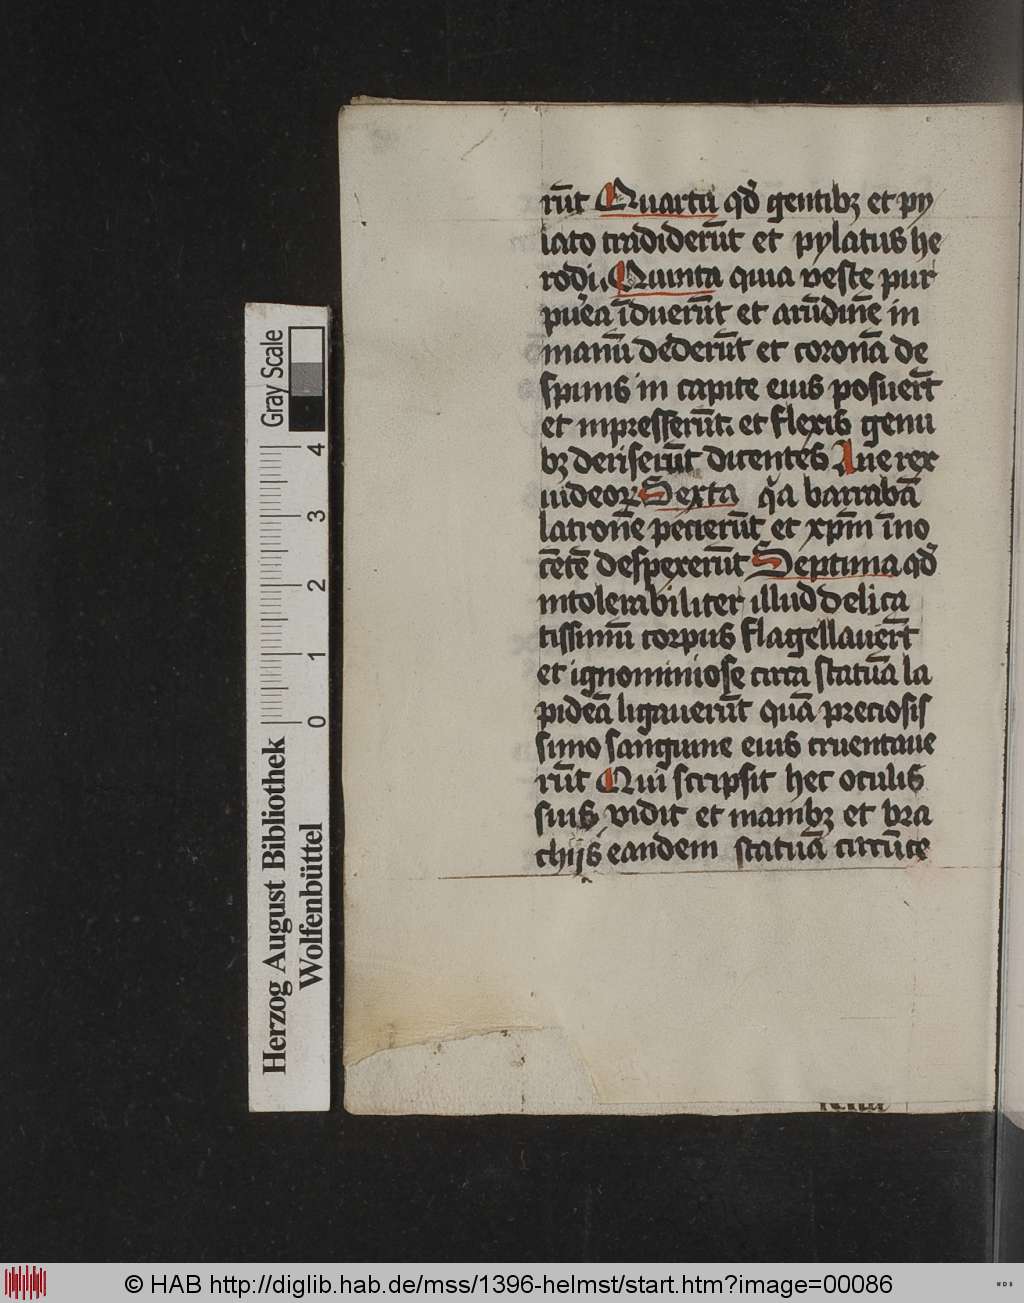 rūt Quartū qđ gentibꝫ et py
lato tradiderūt et pylatus he
rodi. Quinta quia veste pur
purea īduerūt et arūdinē in
manū dederūt et coronā de
spinis in capite eius posuerūt
et inpresserūt. et flexis genu
bꝫ deriserūt dicentes Aue rex
iudeoꝝ Sexta qͣa barrabā
latronē pecierūt et xpm̄ īno
cētē despexerūt Septima qđ
intolerabiliter illud delica
tissimū corpus flagellauerūt
et ignominiose circa statuā la
pideā ligauerūt quā preciosis
simo sanguine eius cruentaue
rūt Qui scripsit hec oculis
suis vidit et manibꝫ et bra
chijs eandem statuā circūce
Gray Scale
0 1 2 3 4
Herzog August Bibliothek
Wolfenbüttel
© HAB http://diglib.hab.de/mss/1396-helmst/start.htm?image=00086